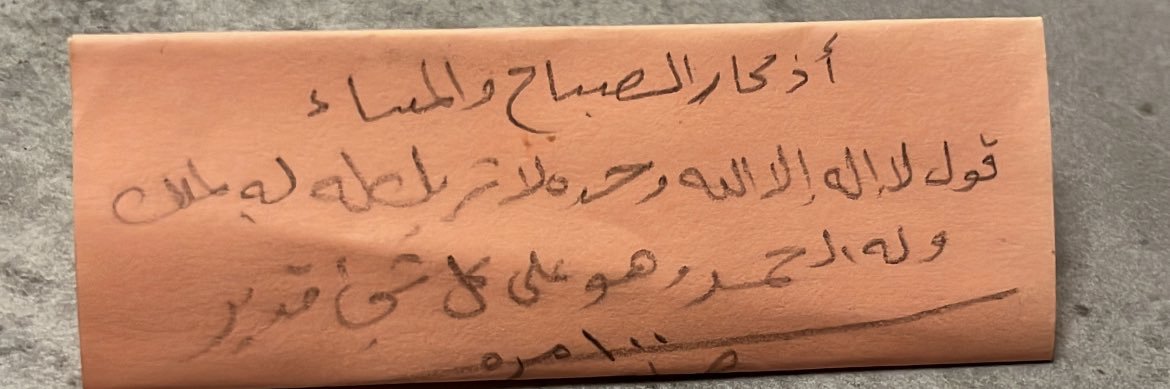 أذكار الصباح والمساء
قول لا إله إلا الله وحده لا شريك له له الملك
وله الحمد وهو على كل شيء قدير
مره